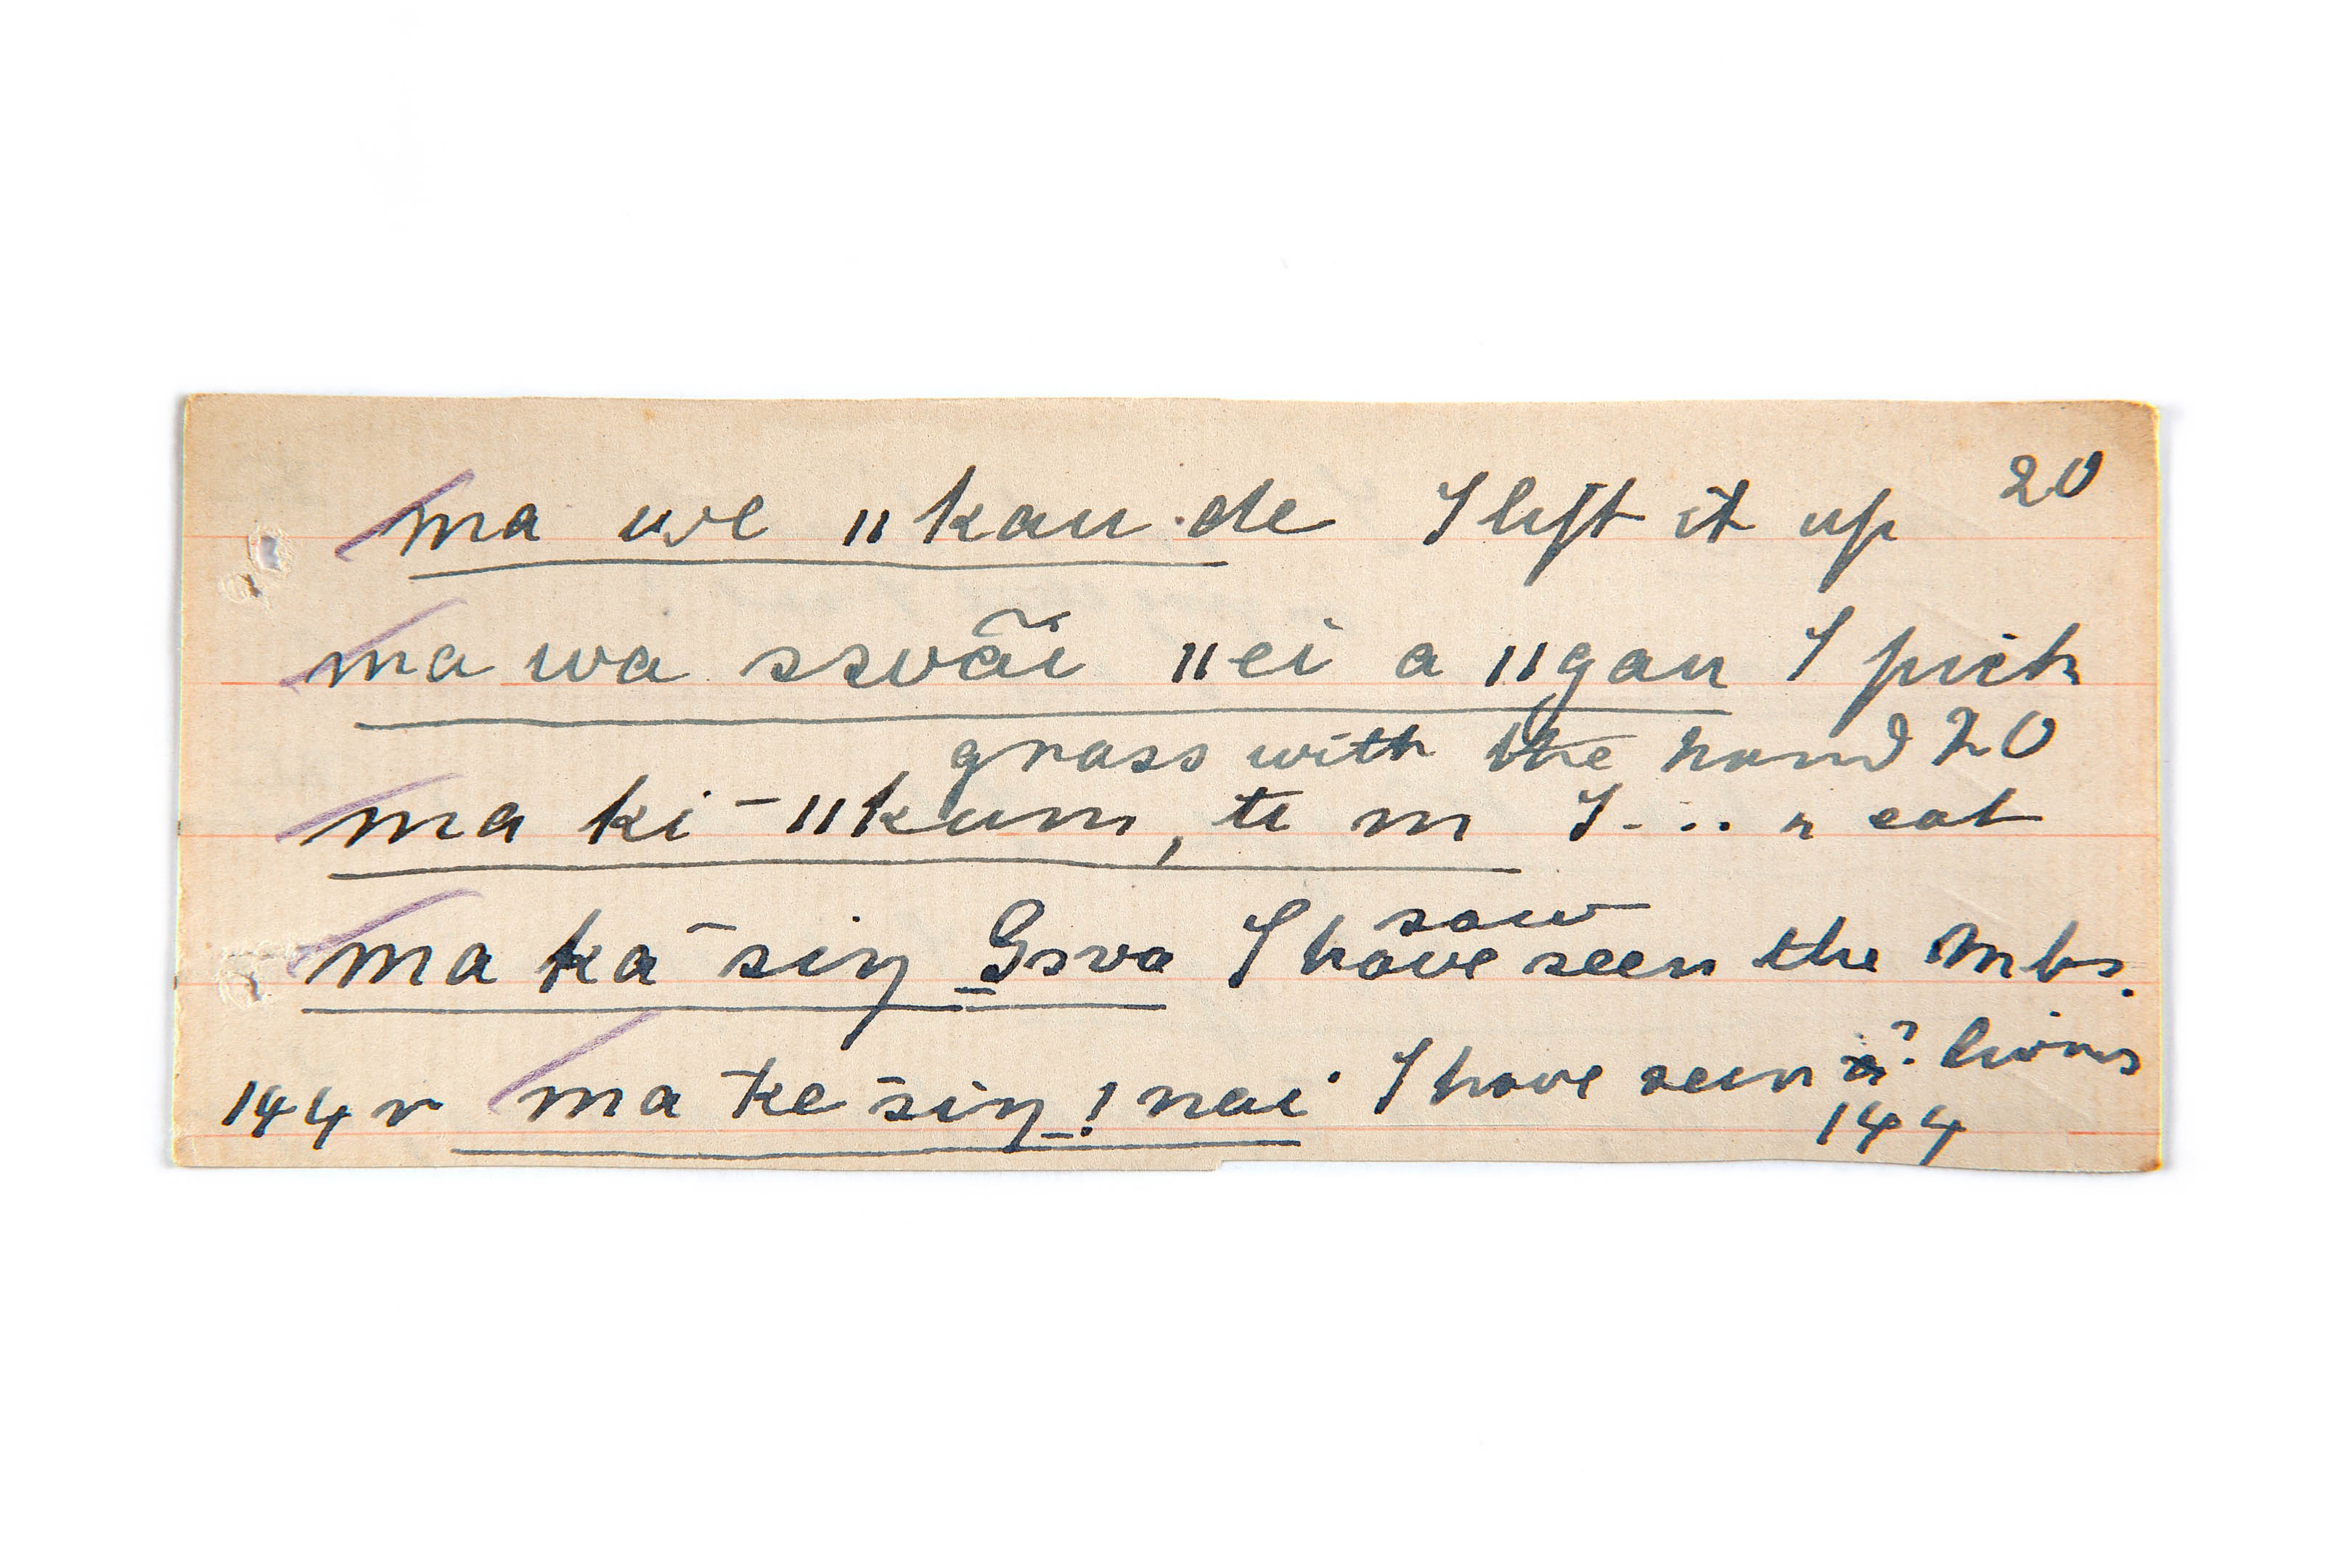 ma we ||kau de I lift it up 20
ma wa sswãi ||ei a ||gau I pick
grass with the hand 20
ma ki - ||kum, ti m I - . . . eat
saw
ma ka - siŋ Gswa I have seen the Mbs.
144 r ma ke siŋ !nai I have seen ? lions
144